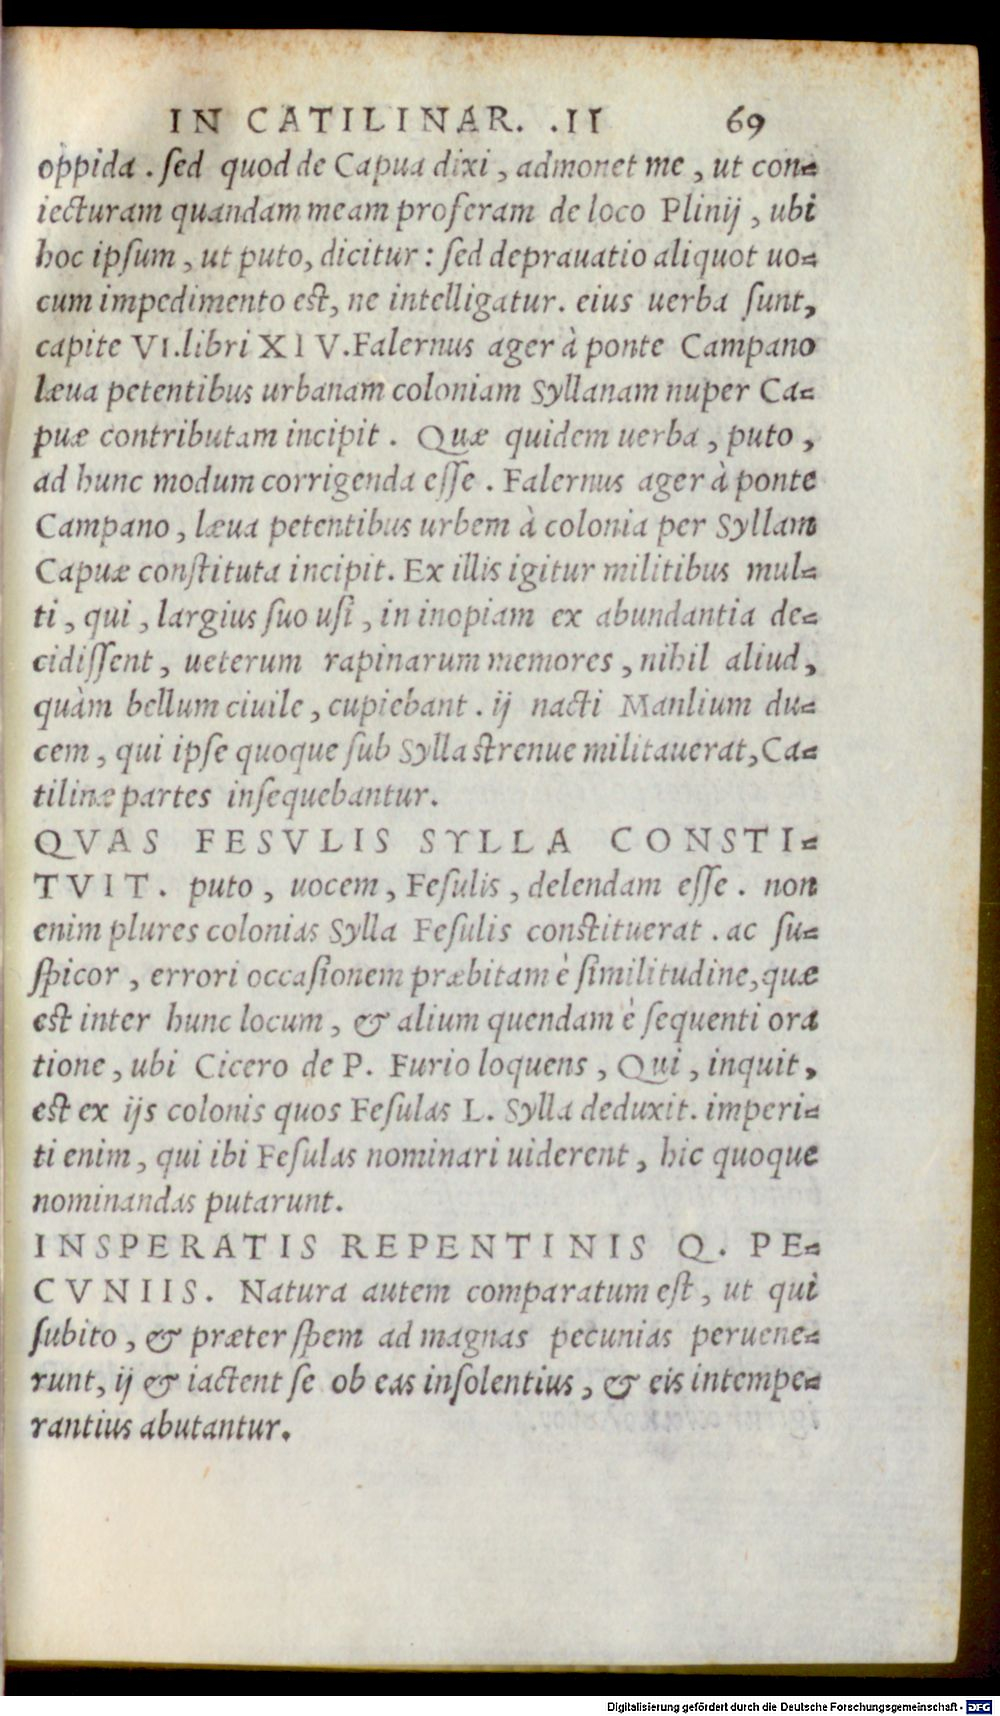 IN CATILINAR. .II 69
oppida . sed quod de Capua dixi , admonet me , ut con=
iecturam quandam meam proferam de loco Plinij , ubi
hoc ipsum , ut puto, dicitur : sed deprauatio aliquot uo=
cum impedimento est, ne intelligatur. eius uerba sunt,
capite VI.libri XIV.Falernus ager à ponte Campano
læua petentibus urbanam coloniam Syllanam nuper Ca=
puæ contributam incipit . Quæ quidem uerba , puto ,
ad hunc modum corrigenda esse . Falernus ager à ponte
Campano , læua petentibus urbem à colonia per Syllam
Capuæ constituta incipit. Ex illis igitur militibus mul=
ti , qui , largius suo usi , in inopiam ex abundantia de=
cidissent , ueterum rapinarum memores , nihil aliud ,
quàm bellum ciuile , cupiebant . ij nacti Manlium du=
cem , qui ipse quoque sub Sylla strenue militauerat, Ca=
tilinæ partes insequebantur.
QVAS FESVLIS SYLLA CONSTI=
TVIT. puto , uocem , Fesulis , delendam esse . non
enim plures colonias Sylla Fesulis constituerat . ac su=
spicor , errori occasionem præbitam è similitudine, quæ
est inter hunc locum , & alium quendam è sequenti ora
tione , ubi Cicero de P. Furio loquens , Qui , inquit ,
est ex ijs colonis quos Fesulas L. Sylla deduxit. imperi=
ti enim , qui ibi Fesulas nominari uiderent , hic quoque
nominandas putarunt.
INSPERATIS REPENTINIS Q. PE=
CVNIIS. Natura autem comparatum est , ut qui
subito , & præter spem ad magnas pecunias peruene=
runt, ij & iactent se ob eas insolentius , & eis intempe=
rantius abutantur.
Digitalisierung gefördert durch die Deutsche Forschungsgemeinschaft - DFG